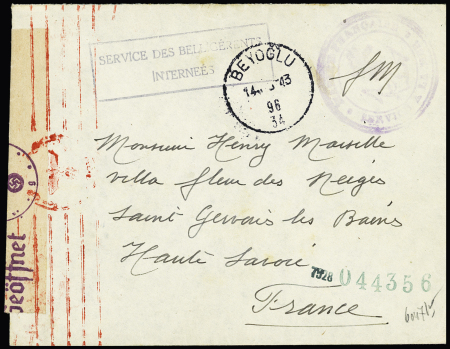 SERVICE DES BELLIGÉRENTS
INTERNEÉS
BEYOGLU
96
34
FM
Monsieur Henry Marseille
villa fleur des Neiges
Saint Gervais les Bains
Haute Savoie
7928 044356
France
geöffnet